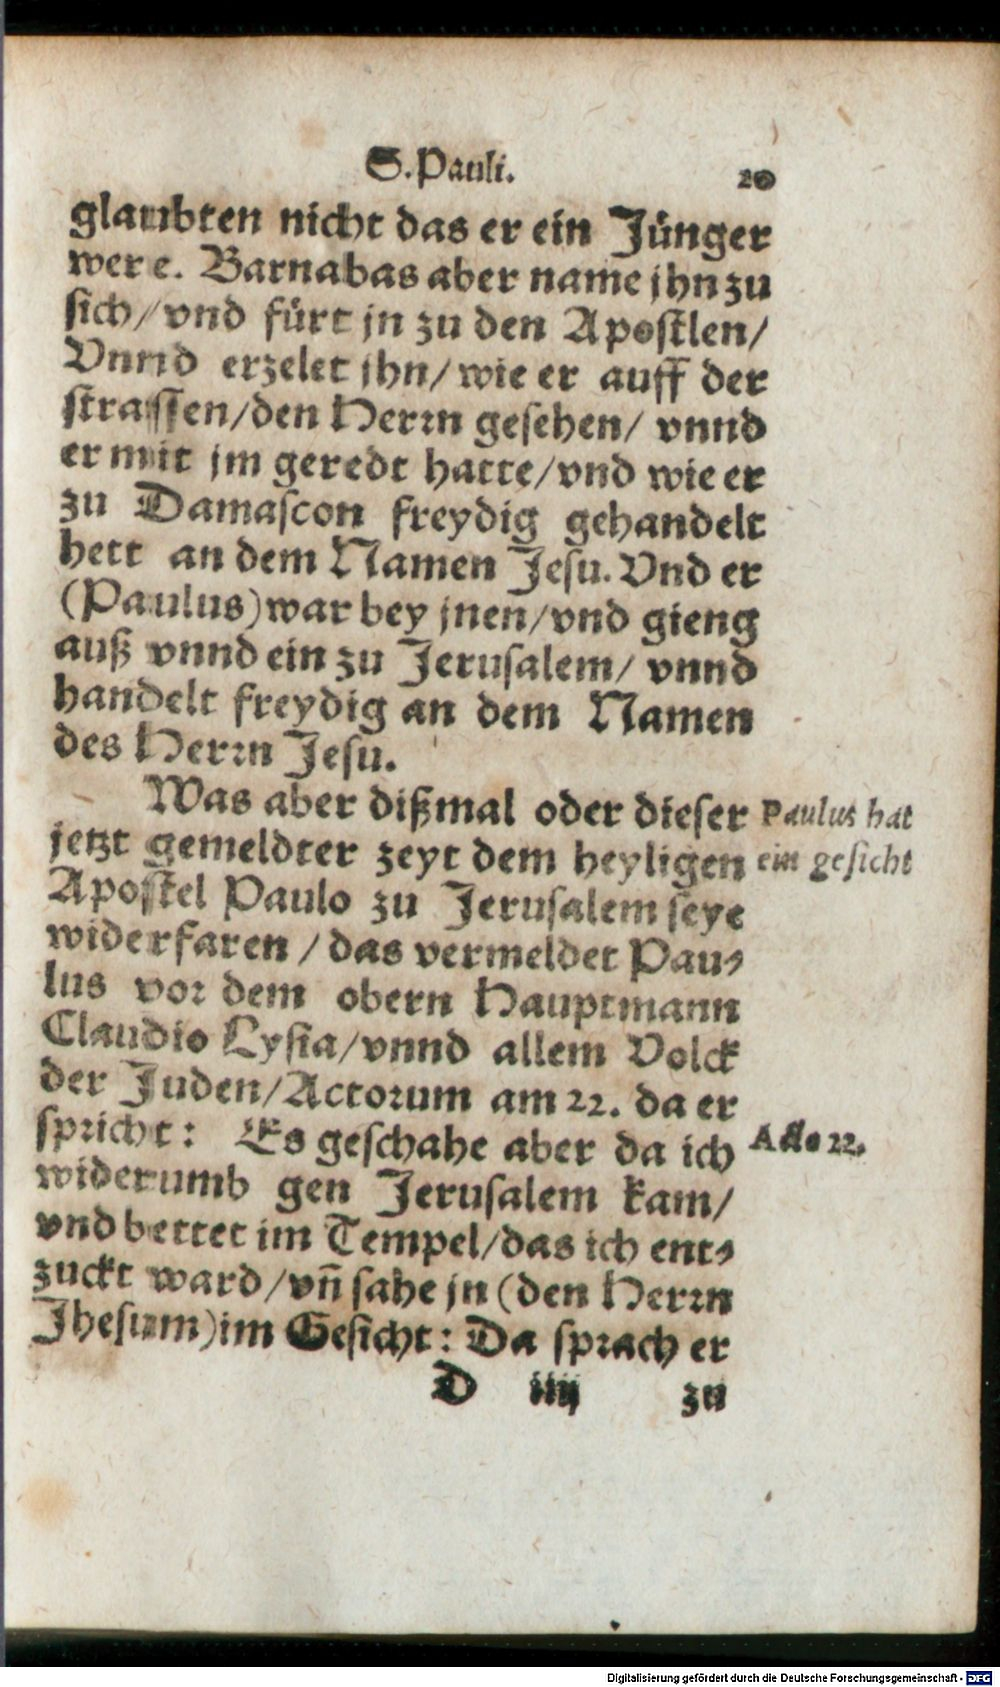 S. Pauli. 20
glaubten nicht das er ein Jünger
were. Barnabas aber name jhn zu
sich/ vnd fürt jn zu den Apostlen/
Vnnd erzelet jhn/ wie er auff der
strassen/den Herrn gesehen/ vnnd
er mit jm geredt hatte/vnd wie er
zu Damascon freydig gehandelt
hett an dem Namen Jesu. Vnd er
(Paulus) war bey jnen/vnd gieng
auß vnnd ein zu Jerusalem/ vnnd
handelt freydig an dem Namen
des Herrn Jesu.
Was aber dißmal oder dieser
Paulus hat
jetzt gemeldter zeyt dem heyligen
ein gesicht
Apostel Paulo zu Jerusalem seye
widerfaren / das vermeldet Pau⸗
lus vor dem obern Hauptmann
Claudio Lysia/vnnd allem Volck
der Juden/Actorum am 22. da er
spricht: Es geschahe aber da ich
Acto 22.
widerumb gen Jerusalem kam/
vnd bettet im Tempel/das ich ent⸗
zuckt ward/vn̄ sahe jn (den Herrn
Jhesum) im Gesicht: Da sprach er
D iiij zu
Digitalisierung gefördert durch die Deutsche Forschungsgemeinschaft - DFG